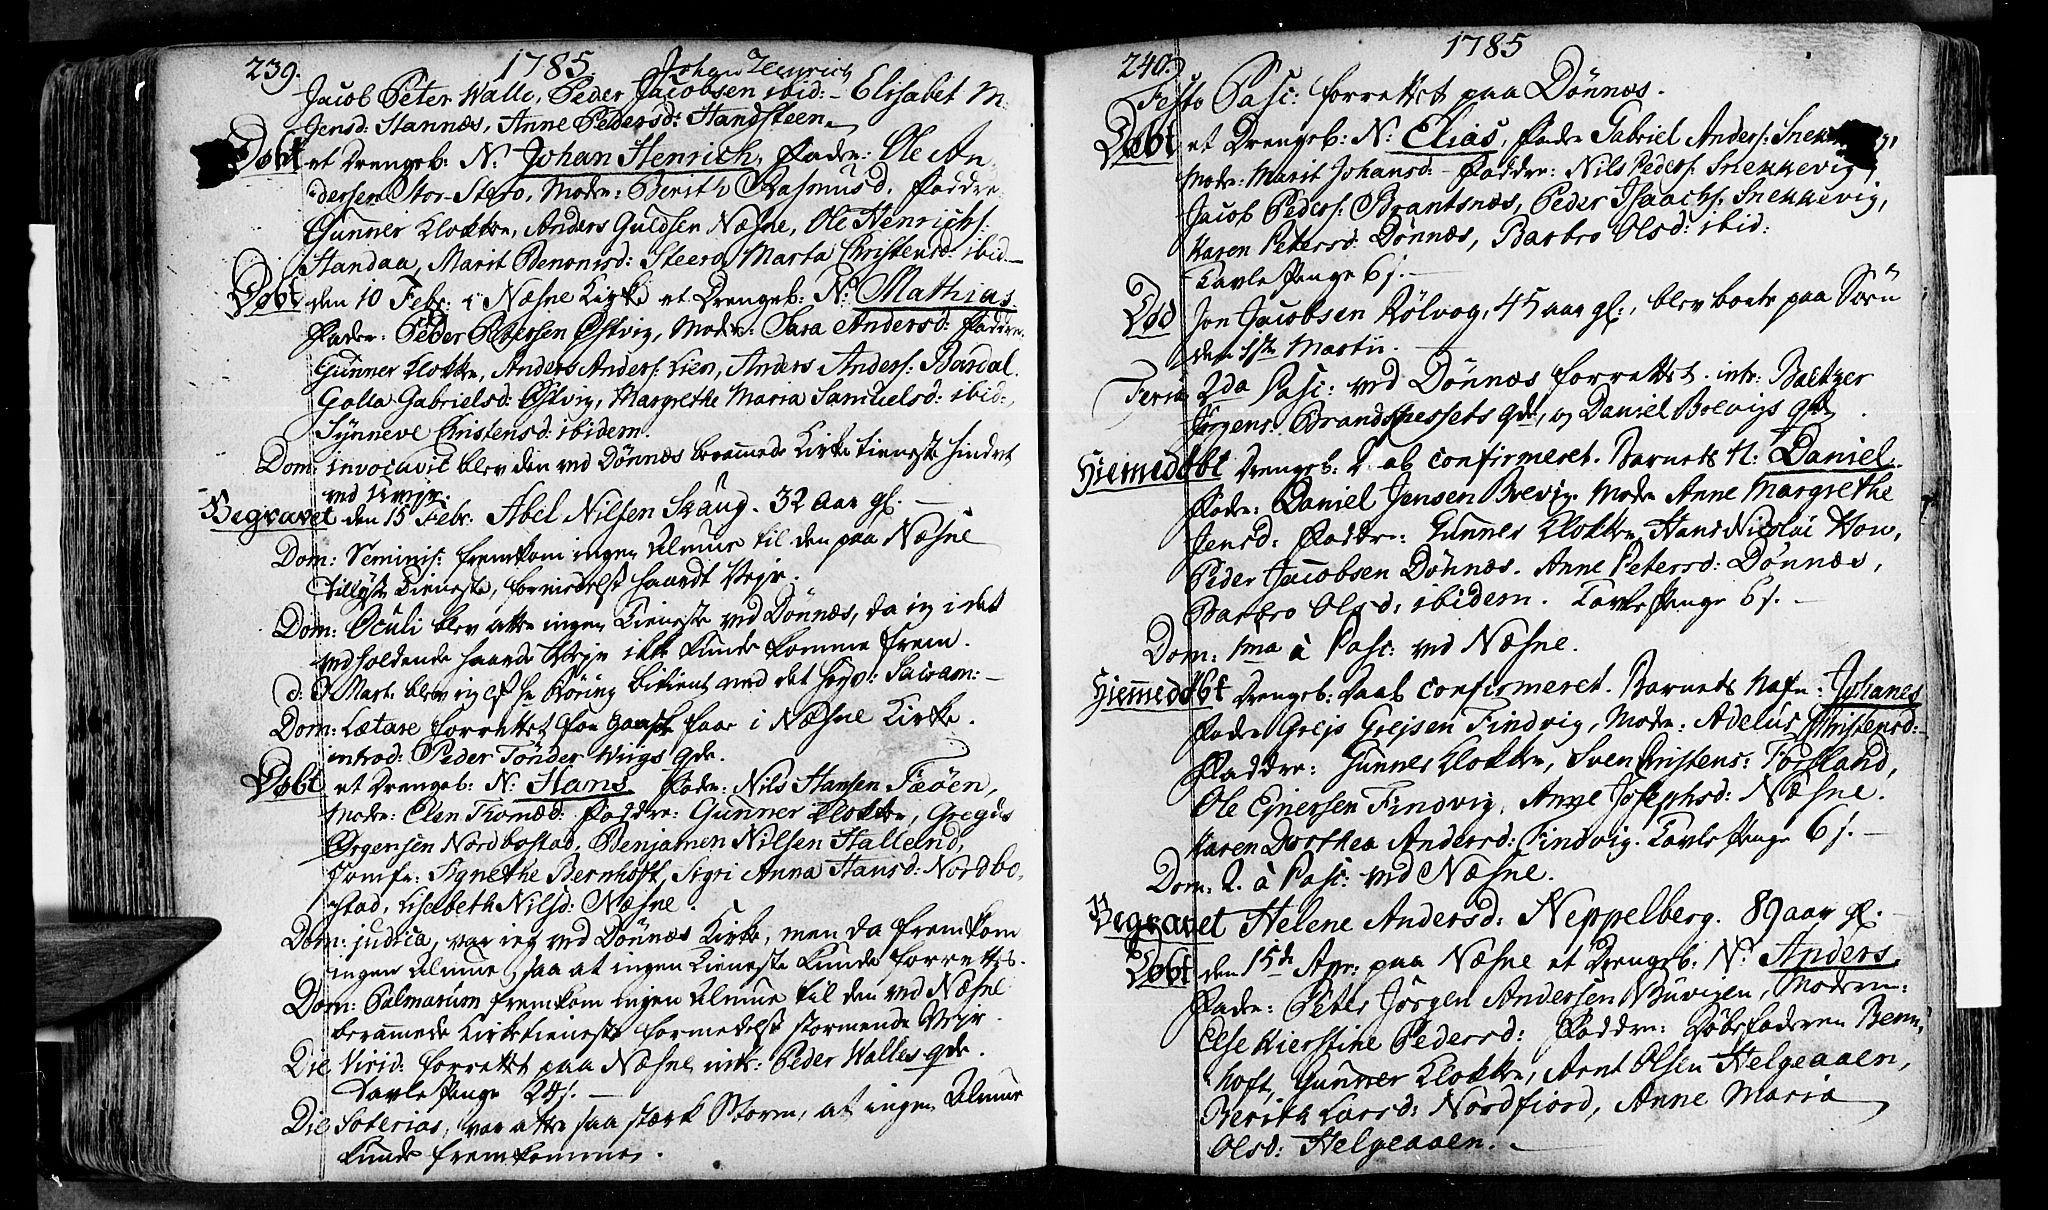 239. 1785 Johan Henrich
Jacob Peter Walle, Peder Jacobsen ibid: Elisabet M:
Jensd: Hannæs, Anne Pedersd: Handsteen
Døbt et Drengeb: N: Johan Henrich, Fader: Ole An
dersen Stor-Stero, Moder: Berith Rasmusd. Faddre
Gunner Klokker, Anders Guldsen Næsne, Ole Henrichs:
Handaa, Marit Benonisd: Steero, Marta Christensd: ibid
Døbt den 10 Febr: i Næsne Kirke et Drengeb: N: Mathias
Fader: Peder Petersen Østvig, Moder: Sara Andersd: Faddre:
Gunner Klokker, Anders Anders: Lien, Anders Anders: Bardal
Golla Gabrielsd: Østvig, Margrethe Maria Samuelsd: ibid:,
Synneve Christensd: ibidem.
Dom: invocavit blev den ved Dönnæs berammede Kirketieneste hindret
ved Uvejr.
Begravet den 15 Febr: Abel Nilsen Skaug. 32 Aar gl.
Dom: Seminis: fremkom ingen Almue til den paa Næsne
tillyste Tieneste, formedelst haardt Vejr.
Dom: Oculi blev atter ingen Tieneste ved Dönnæs, da jeg i det
vedholdende haarde Vejr ikke kunde komme frem.
d: 3 Mart. blev jeg af Hr Röring betient med det høyv: Sacram:
Dom: Lætare forrettet for gandske faae i Næsne Kirke.
introd: Peder Tönder Wiigs qde.
Døbt et Drengeb: N: Hans Fader: Nils Hansen Fæöen,
Moder: Elen Thomæd: Faddre: Gunner Klokker, Gregds
Ørgensen Nordbostad, Benjamen Nilsen Halland,
Jomfr: Agnethe Bernhoft, Sigri Anna Hansd: Nordbo,
stad, Lisabeth Nilsd: Næsne.
Dom: judica, var jeg ved Dönnæs Kirke, men da fremkom
ingen Almue, saa at ingen Tieneste kunde forrettes.
Dom: Palmarum fremkom ingen Almue til den ved Næsne
berammede Kirketieneste formedelst stormende Vejr.
Die Virid: forrettet paa Næsne intr: Peder Walles qde.
Tavle Penge 24 s.
Die Soterias, var atter saa stærk Storm, at ingen Almue
kunde fremkomme.
240. 1785
Festo Pasc: forrettet paa Dönnæs.
Døbt et Drengeb: N: Elias, Fader Gabriel Anders:
Moder: Marit Johansd: Faddre: Nils Peders: Snekkevig,
Jacob Peders: Brantsnæs, Peder Isaachs: Snekkevig,
Karen Petersd: Dönnæs, Barbro Olsd: ibid:
Tavle Penge 6 s.
Død Jon Jacobsen Rölvog, 45 aar gl., blev borte paa Söen
den 1ste Martii.
Feria 2da Pasc: ved Dönnæs forrettet. intr: Baltzer
Jörgens: qde, og Daniel Brevigs qde.
Hiemedøbt Drengeb: Daab confirmeret. Barnets N: Daniel.
Fader: Daniel Jensen Brevig. Moder Anne Margrethe
Jensd: Faddre: Gunner Klokker, Hans Nicolai Hov,
Peder Jacobsen Dönnæs. Anne Petersd: Dönnæs,
Barbro Olsd: ibidem. Tavle Penge 6 s.
Dom: 1ma à Pasc: ved Næsne.
Hiemmedøbt Drengeb: Daab confirmeret. Barnets Nafn: Johanes
Fader Grejs Grejsen Findvig, Moder: Adelus Christensd:
Faddre: Gunner Klokker, Sven Christens: Forsland,
Ole Ejnersen Findvig, Anne Josephsd: Næsne.
Karen Dorthea Andersd: Findvig. Tavle Penge 6 s.
Dom: 2. à Pasc: ved Næsne.
Begravet Helene Andersd: Neppelberg. 89 aar gl.
Døbt den 15de Apr: paa Næsne et Drengeb: N: Anders.
Fader: Peter Jörgen Andersen Buvigen, Moder:
Else Kierstine Pedersd: Faddre: Gunner Klokker, Arnt Olsen Helgeaaen,
Berith Larsd: Nordfiord, Anne Maria
Olsd: Helgeaaen.